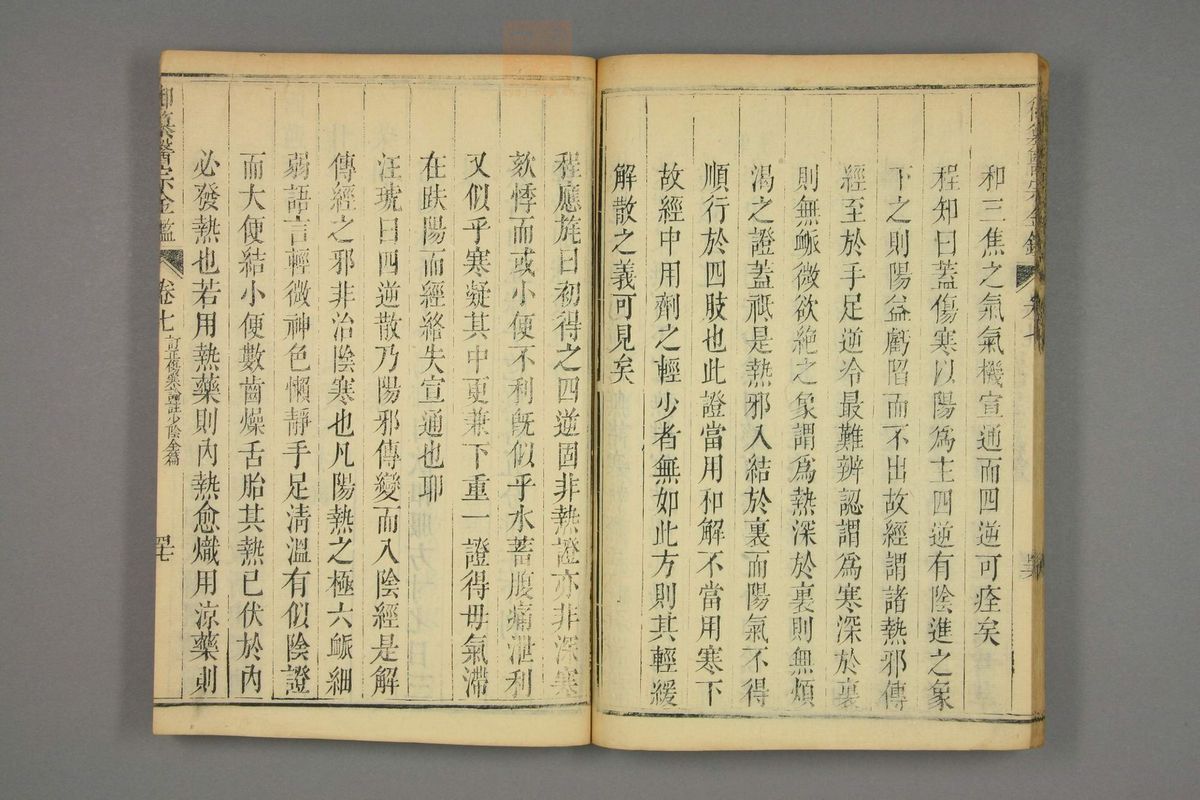 和三焦之氣氣機宣通而四逆可痊矣
程知曰蓋傷寒以陽爲主四逆有陰進之象
下之則陽益虧陷而不出故經謂諸熱邪傳
經至於手足逆冷最難辨認謂爲寒深於裏
則無脈微欲絶之象謂爲熱深於裏則無煩
渴之證蓋祗是熱邪入結於裏而陽氣不得
順行於四肢也此證當用和解不當用寒下
故經中用劑之輕少者無如此方則其輕緩
解散之義可見矣
程應旄曰初得之四逆固非熱證亦非深寒
欬悸而或小便不利旣似乎水蓄腹痛泄利
又似乎寒凝其中更兼下重一證得毋氣滯
在趺陽而經絡失宣通也耶
汪琥曰四逆散乃陽邪傳變而入陰經是解
傳經之邪非治陰寒也凡陽熱之極六脈細
弱語言輕微神色懶靜手足清溫有似陰證
而大便結小便數齒燥舌胎其熱已伏於內
必發熱也若用熱藥則內熱愈熾用涼藥則
御纂醫宗金鑑
卷七
訂正傷寒論註少陰全篇